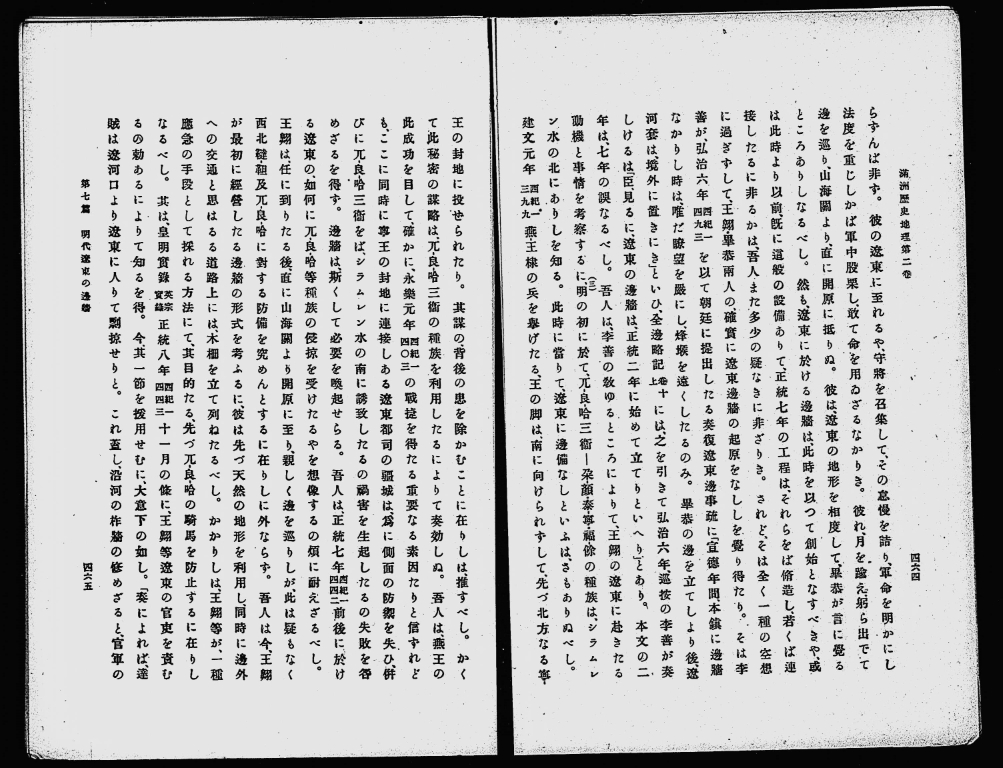 滿洲歷史地理第二卷
四六四
らずんば非ず。彼の遼東に至れるや、守將を召集して、その怠慢を詰り、軍命を明かにし
法度を重じしかば軍中股栗し、敢て命を用ゐざるなかりき。彼れ月を踰え、躬ら出でて
邊を巡り、山海關より、直に開原に抵りぬ。彼は、遼東の地形を相度して、畢恭が言に覺る
ところありしなるべし。然も、遼東に於ける邊牆は、此時を以つて創始となすべきや、或
は此時より以前、既に這般の設備ありて、正統七年の工程は、それらをば脩造し、若くば連
接したるに非るかは、吾人また多少の疑なきに非ざりき。されど、そは全く一種の空想
に過ぎずして、王翺・畢恭兩人の確實に遼東邊牆の起原をなししを覺り得たり。そは李
善が、弘治六年西紀一四九三を以て朝廷に提出したる奏復遼東邊事疏に、宣德年間、本鎭に邊牆
なかりし時は、唯だ瞭望を嚴にし、烽堠を遠くしたるのみ。畢恭の邊を立てしより後、遼
河套は境外に置きにき」といひ、全邊略記卷十上には、之を引きて弘治六年、巡按の李善が奏
しけるは、臣、見るに、遼東の邊牆は、正統二年に始めて立てりといへり」とあり。本文の二
年は、七年の誤なるべし。吾人は、李善の敎ゆるところによりて、王翺の遼東に赴きたる
動機と事情を考察するに(三)明の初に於て、兀良哈三衞―朶顏・泰寧・福餘の種族は、シラムレ
ン水の北にありしを知る。此時に當りて、遼東に邊備なしといふはさもありぬべし。
建文元年西紀一三九九燕王棣の兵を擧げたる、王の脚は、南に向けられずして先づ北方なる寧
王の封地に投せられたり。其謀の背後の患を除かむことに在りしは、推すべし。かく
て此秘密の謀略は、兀良哈三衞の種族を利用したるによりて奏効しぬ。吾人は、燕王の
此成功を目して、確かに、永樂元年西紀一四〇三の戰捷を得たる重要なる素因たりと信ずれど
も、ここに同時に寧王の封地に連接しある遼東都司の疆域は、爲に側面の防禦を失ひ、併
びに兀良哈三衞をば、シラムレン水の南に誘致したるの禍害を生起したるの失敗を咎
めざるを得ず。邊牆は、斯くして必要を喚起せらる。吾人は、正統七年西紀一四四二前後に於け
る遼東の、如何に兀良哈等種族の侵掠を受けたるやを想像するの煩に耐えざるべし。
王翺は任に到りたる後、直に山海關より開原に至り、親しく邊を巡りしが、此は疑もなく
西北韃靼及兀良哈に對する防備を究めんとするに在りしに外ならず。吾人は今、王翺
が最初に經營したる邊牆の形式を考ふるに、彼は先づ天然の地形を利用し、同時に邊外
への交通と思はるる道路上には、木柵を立て列ねたるべし。かかりしは、王翺等が、一種
應急の手段として採れる方法にて、其目的たる、先づ兀良哈の騎馬を防止するに在りし
なるべし。其は、皇明實錄英宗實錄正統八年西紀一四四三十一月の條に、王翺等遼東の官吏を責む
るの勅あるによりて知るを得。今、其一節を援用せむに、大意下の如し。「奏によれば、達
賊は遼河口より遼東に入りて剽掠せりと。これ蓋し、沿河の柞牆の修めざると、官軍の
第七篇　明代遼東の邊牆
四六五